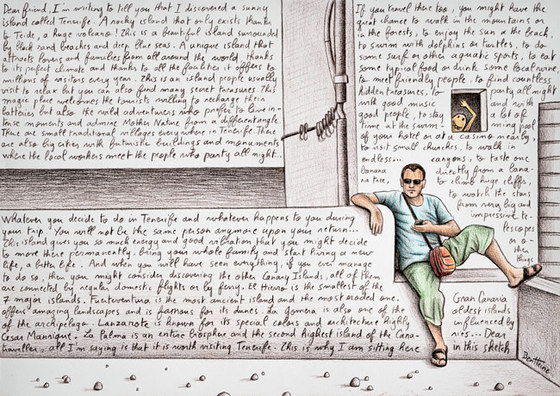 Dear friend. I'm writing to tell you that I discovered a sunny
island called Tenerife. A rocky island that only exists thanks
to Teide, a huge volcano! This is a beautiful island surrounded
by black sand beaches and deep blue seas. A unique island that
attracts lovers and families from all around the world thanks
to its perfect climate and thanks to all the facilities it offers to
millions of visitors every year. This is an island people usually
visit to relax but you can also find many secret treasures. This
magic place welcomes the tourists willing to recharge their
batteries but also the wild adventurers who prefer to live in-
tense moments and admire Mother Nature from a different angle.
There are small traditional villages everywhere in Tenerife. There
are also big cities with futuristic buildings and monuments
where the local workers meet the people who party all night...
If you travel there too, you might have the
great chance to walk in the mountains or
in the forests, to enjoy the sun at the beach,
to swim with dolphins or turtles, to do
some surf or other aquatic sports, to eat
some typical food or drink some local wine
to meet friendly people, to find countless
hidden treasures, to party all night
with good music and with
good people, to stay a lot of
time at the swim- ming pool
of your hotel or at a casino nearby
to visit small churches, to walk in
endless... canyons, to taste one
banana directly from a bana-
na tree, to climb high cliffs,
to watch the stars
from very big and
impressive te-
lescopes
or o-
ther
things
Whatever you decide to do in Tenerife and whatever happens to you during
your trip. You will not be the same person anymore upon your return...
This island gives you so much energy and good vibration that you might decide
to move there permanently, bring your whole family and start living a new
life, a better life. And when you will have seen everything, if you ever manage
to do so, then you might consider discovering the other Canary Islands, all of them
are connected by regular domestic flights or by ferry. El Hierro is the smallest of the
7 major islands. Fuerteventura is the most ancient island and the most eroded one.
offers amazing landscapes and is famous for its dunes. La Gomera is also one of the
of the archipelago. Lanzarote is known for its special colors and architecture highly
Cesar Manrique. La Palma is an entire biosphere and the second highest island of the Cana-
traveller, all I'm saying is that it is worth visiting Tenerife. This is why I am sitting here
Gran Canaria
oldest islands
influenced by
ries... Dear
in this sketch